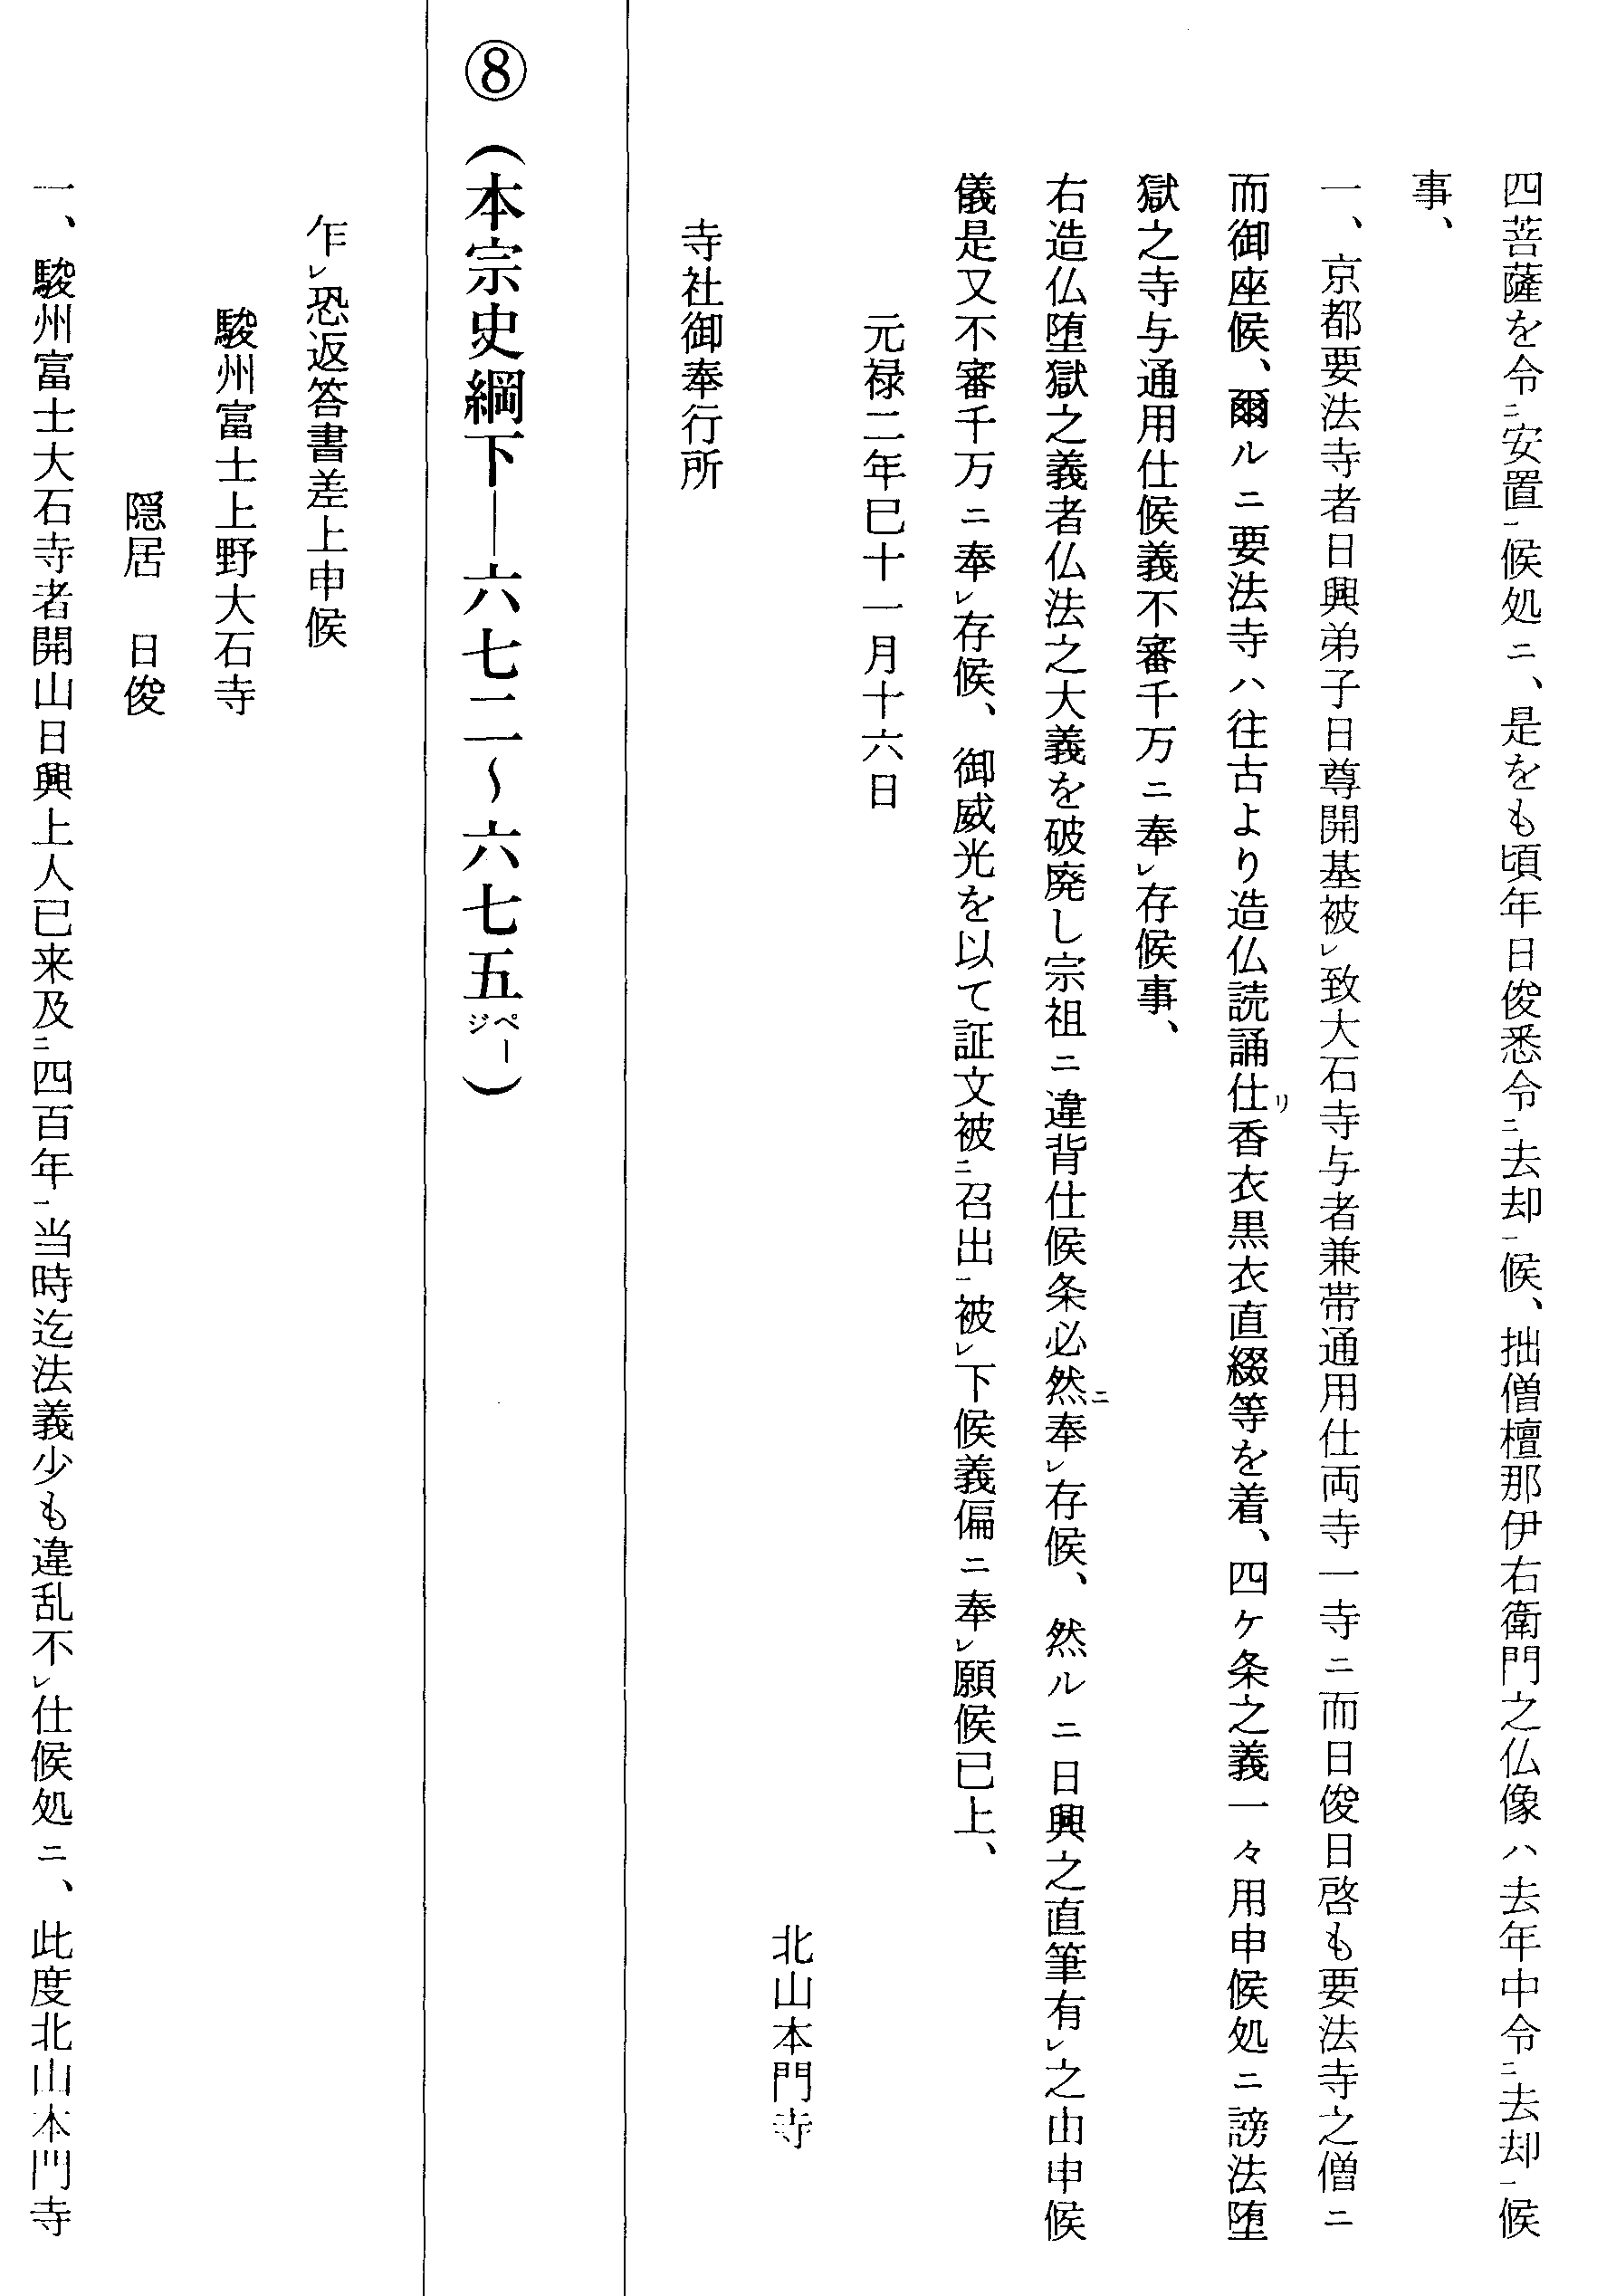 四菩薩を令ニ安置一候処ニ、是をも頃年日俊悉令ニ去却一候、拙僧檀那伊右衛門之仏像ハ去年中令ニ去却一候
事、
一、京都要法寺者日興弟子日尊開基被レ致大石寺与者兼帯通用仕両寺一寺ニ而日俊日啓も要法寺之僧ニ
而御座候、爾ルニ要法寺ハ往古より造仏読誦仕リ香衣黒衣直綴等を着、四ケ条之義一々用申候処ニ謗法堕
獄之寺与通用仕候義不審千万ニ奉レ存候事、
右造仏堕獄之義者仏法之大義を破廃し宗祖ニ違背仕候条必然ニ奉レ存候、然ルニ日興之直筆有レ之由申候
儀是又不審千万ニ奉レ存候、御威光を以て証文被ニ召出一被レ下候義偏ニ奉レ願候已上、
元禄二年巳十一月十六日
北山本門寺
寺社御奉行所
⑧（本宗史綱下―六七二～六七五ページ）
乍レ恐返答書差上申候
駿州富士上野大石寺
隠居　日俊
一、駿州富士大石寺者開山日興上人已来及ニ四百年一当時迄法義少も違乱不レ仕候処ニ、此度北山本門寺